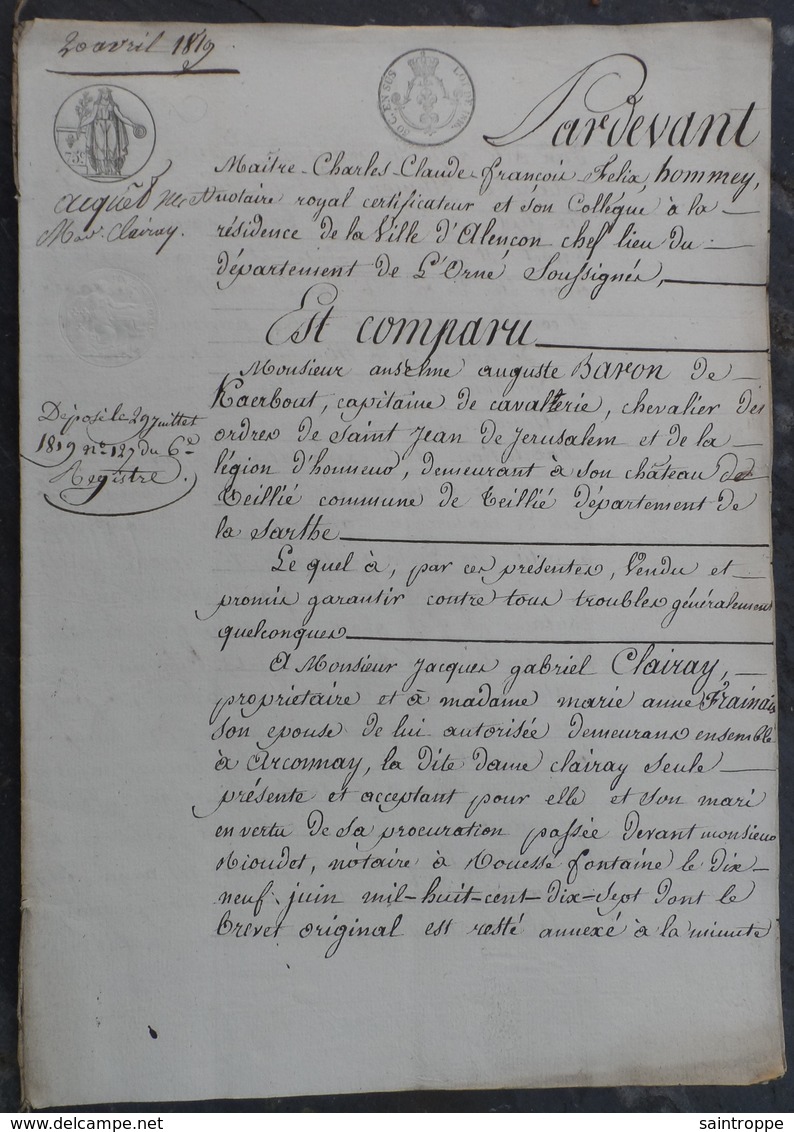 20 avril 1819
50 C. EN SUS
75 C
acquêt
M. Clairay.
Déposé le 29 juillet
1819 nº 127 du 6e
Registre.
Pardevant
Maître Charles Claude François Felix, hommey,
Notaire royal certificateur et son Collégue à la
résidence de la Ville d'Alençon chef lieu du
département de L'Orne Soussignés,
Est comparu
Monsieur anselme auguste Baron de
Kaerbout, capitaine de cavallerie, chevalier des
ordres de Saint Jean de Jerusalem et de la
légion d'honneur, demeurant à son château de
teillié commune de teillié département de
la Sarthe
Le quel à, par ces présentes, Vendu et
promis garantir contre tous troubles généralement
quelconques
A Monsieur Jacques gabriel Clairay,
propriétaire et à madame marie anne Frainais
son epouse de lui autorisée demeurans ensemble
à Arconnay, la dite dame clairay seule
présente et acceptant pour elle et son mari
en vertu de sa procuration passée devant monsieur
Rioudet, notaire à Rouessé fontaine le dix
neuf juin mil-huit-cent-dix-sept dont le
brevet original est resté annexé à la minute
saintroppe